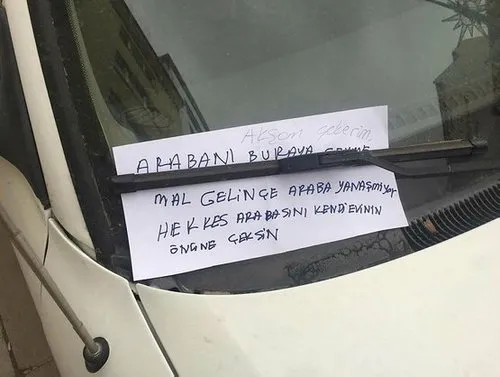 Akşam gelerim
ARABANI BURAYA ÇEKME
MAL GELİNÇE ARABA YANAŞMıYor
HEKKES ARABASINI KENDİEVİNİN
ÖNÜNE ÇEKSİN